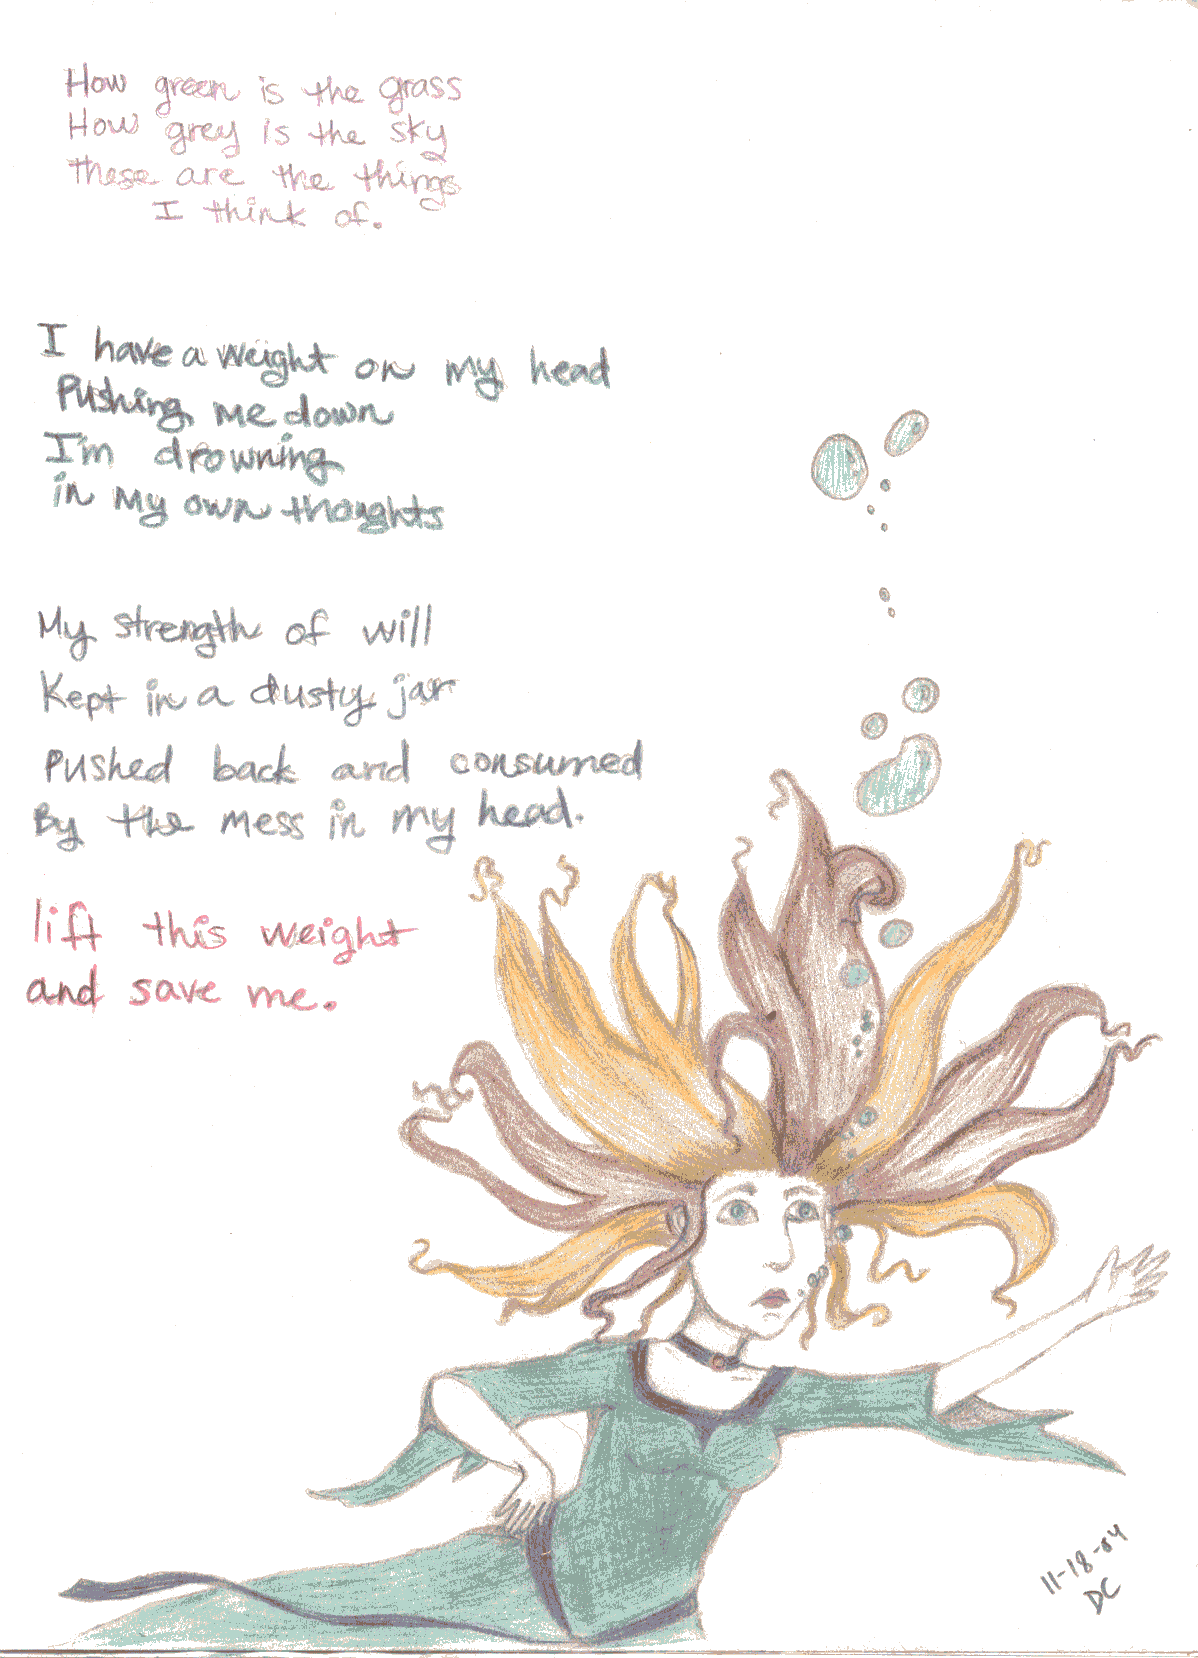 How green is the grass
How grey is the sky
These are the things
I think of.
I have a weight on my head
Pushing me down
I'm drowning
in my own thoughts
My strength of will
Kept in a dusty jar
Pushed back and consumed
By the mess in my head.
lift this weight
and save me.
11-18-04
DC